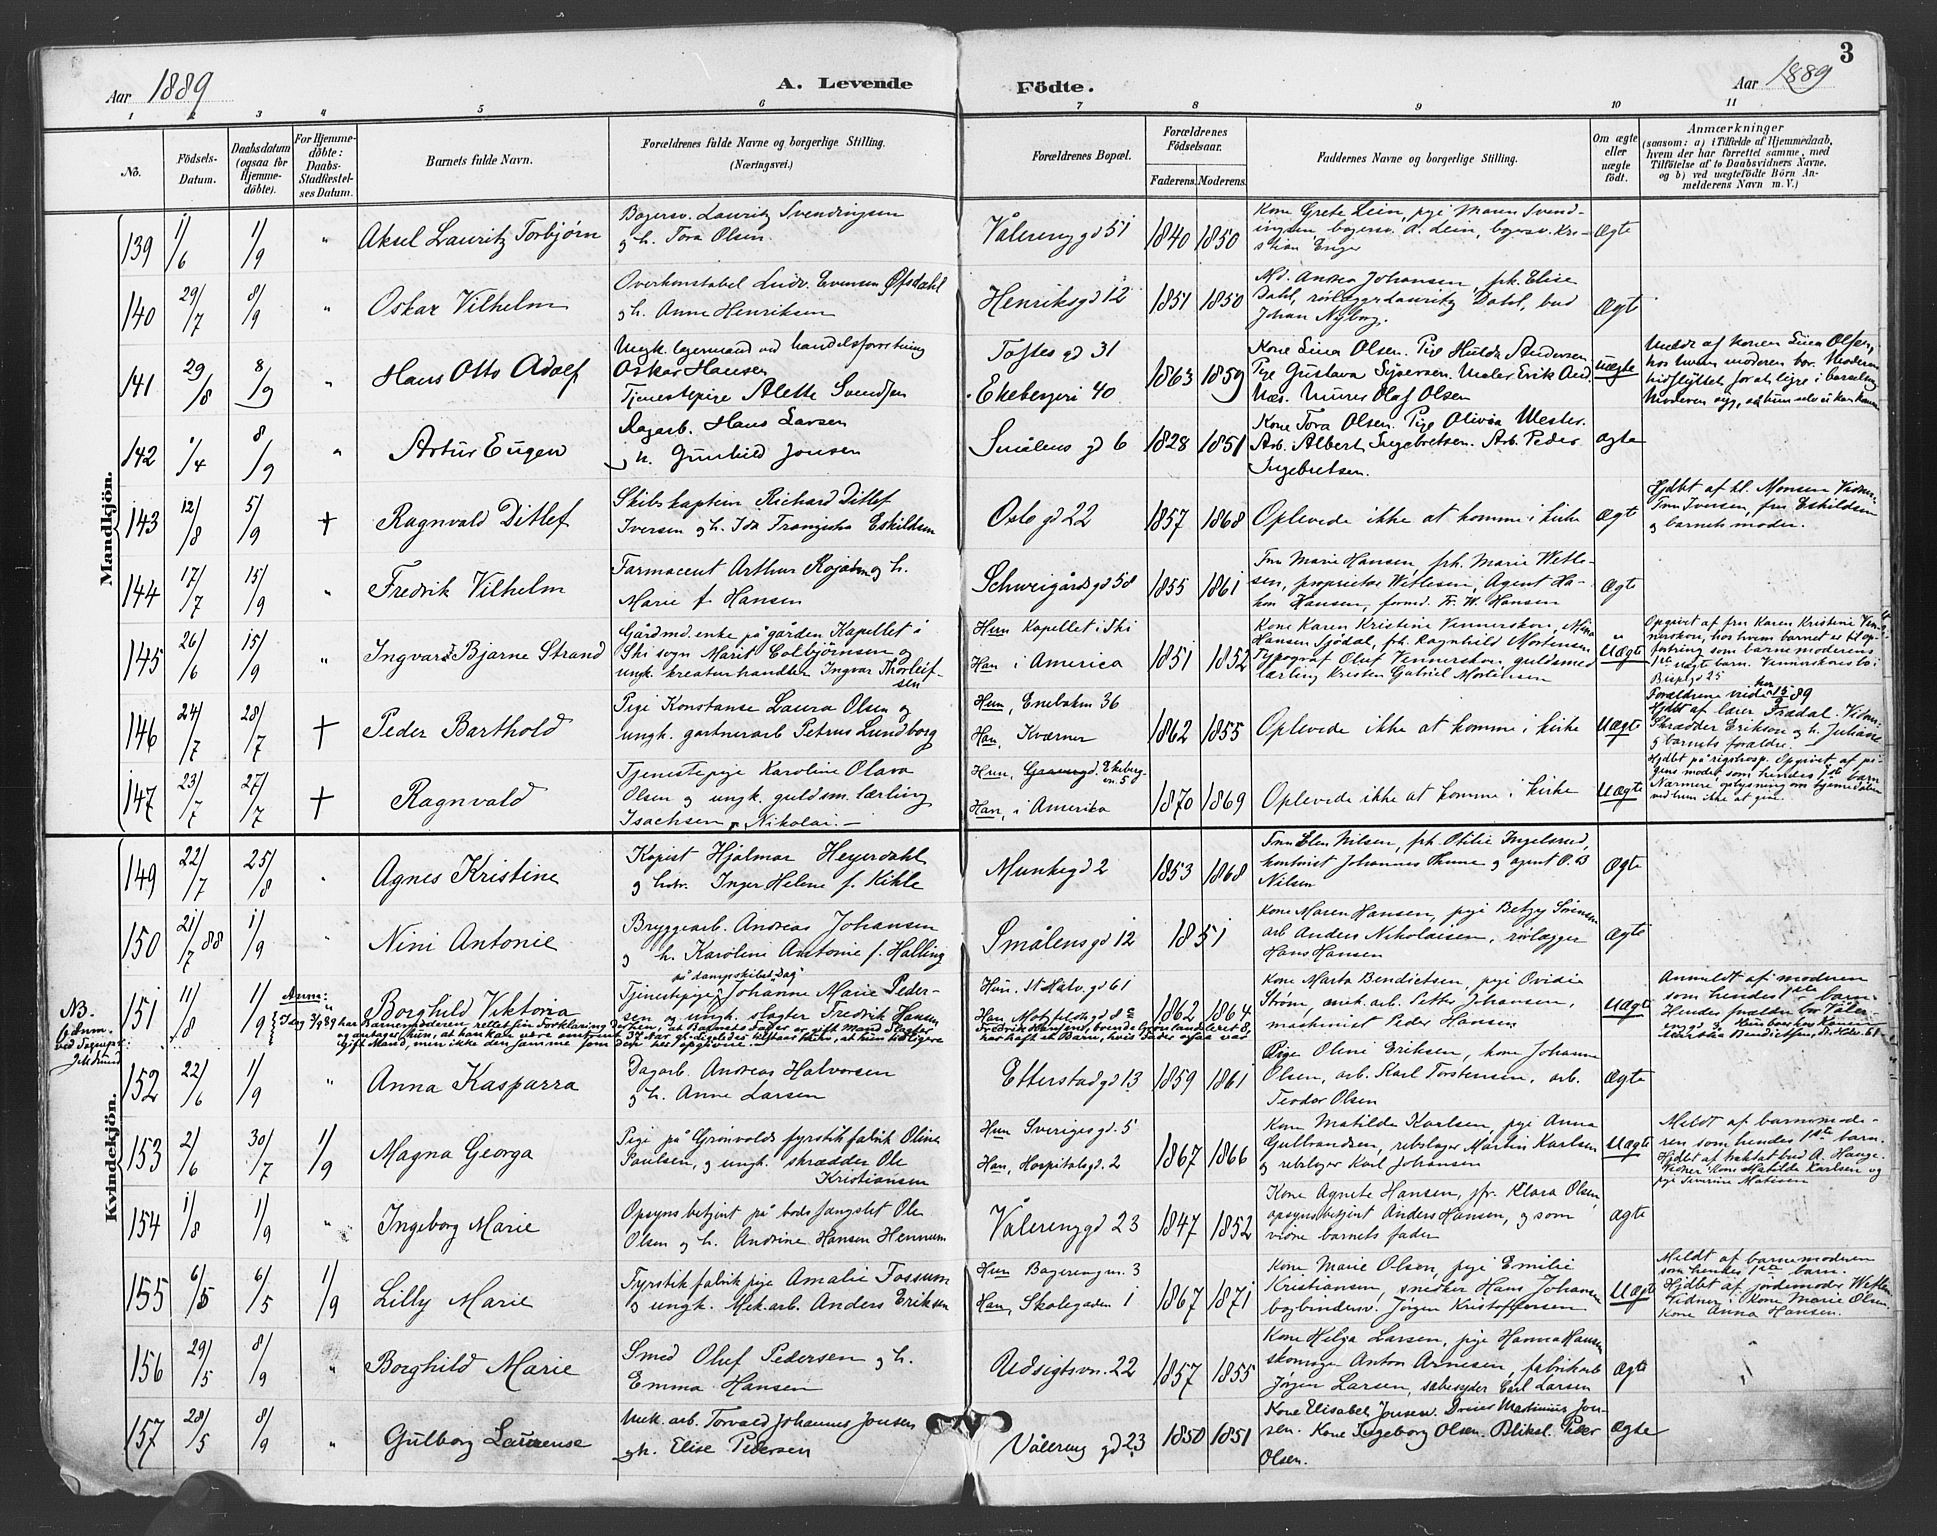 3
Aar 1889
A. Levende
Födte.
Aar 1889
1 2 3 4 5 6 7 8 9 10 11
No.
Födsels-
Datum.
Daabsdatum
(ogsaa for
Hjemme-
döbte).
For Hjemme-
döbte:
Daabs-
Stadfæstel-
ses Datum.
Barnets fulde Navn.
Forældrenes fulde Navne og borgerlige Stilling.
(Næringsvei.)
Forældrenes Bopæl.
Forældrenes
Födselsaar.
Faderens. Moderens.
Faddernes Navne og borgerlige Stilling.
Om ægte
eller
uægte
födt.
Anmærkninger
(saasom: a) i Tilfælde af Hjemmedaab,
hvem der har forrettet samme, med
Tilföielse af to Daabsvidners Navne,
og b) ved uægtefödte Börn An-
melderens Navn m. V.)
Mandkjön.
139 1/6 1/9 " Aksel Lauritz Torbjørn
Bagersv. Lauritz Svendingsen
og h. Tora Olsen.
Vålerenggd 51 1840 1850
Kone Grete Lein, pige Maren Svend-
ingsen, bagersv. A. Lein, bagersv. Kri-
stian Enger
Ægte
140 29/7 8/9 " Oskar Vilhelm
Overkonstabel Ludv. Evensen Øfsdahl
og h. Anne Henriksen
Henriksgd 12 1851 1850
Md. Andrea Johansen, frk. Elise
Dahl, rørlægger Lauritz Dahl, bud
Johan Nyborg.
Ægt
141 29/8 8/9 " Hans Otto Adolf
Ungk. lagermand ved handelsforretning
Oskar Hansen
Tjenestepige Alette Svendsen
Toftes gd 31
Ekebergeri 40 1863 1859
Kone Lina Olsen. Pige Hulda Andersen
Pige Gustava Syversen. Maler Erik And.
Næs. Murer Olaf Olsen
uægte
Meldt af konen Lina Olsen,
hos hvem moderen bor. Moderen
hidflyttet for at ligge i barselseng
Moderen syg, så hun selv ei kan komme
142 1/4 8/9 " Artur Eugen
Dagarb. Hans Larsen
og h. Gunhild Jonsen
Smålens gd 6 1828 1851
Kone Tora Olsen. Pige Olivia Wester.
Arb. Albert Ingebretsen. Arb. Peder
Ingebretsen.
ægte
143 12/8 5/9 + Ragnvald Ditlef
Skibskaptein Richard Ditlef
Iversen og h. Ida Trangistha Eskildsen
Oslo gd 22 1857 1868
Oplevede ikke at komme i kirke
Ægt
Hjdbt af kl. Monsen Vidner:
Fru Iversen, fru Eskildsen
og barnets moder.
144 17/7 15/9 " Fredrik Vilhelm
Farmaceut Arthur Rojahn og h.
Marie f. Hansen
Schweigårdsgd 58 1855 1861
Fru Marie Hansen, frk. Marie Wetle-
sen, proprietær Wetlesen, Agent Ha-
kon Hansen, formd. Fr. W. Hansen
Ægt
145 26/6 15/9 " Ingvard Bjarne Strand
Gårdmd. enke på gården Kapellet i
Ski sogn Marit Colbjørnsen og
ungk. kreaturhandler Ingvar Thorleif-
sen
Hun Kapellet i Ski
Han i America 1851 1852
Kone Karen Kristine Vennerskou, Mina
Hansen Sjödal, frk. Ragnhild Mortensen
Typograf Oluf Vennerskou, guldsmed
lærling Kristen Gabriel Mortensen
Uægte
Opgivet af fru Karen Kristine Ven-
nerskou, hos hvem barnet er til op-
fostring som barnemoderens
1ste uægte barn. Vennerskous bo i
Bispegd 25
146 24/7 28/7 + Peder Barthold
Pige Konstanse Laura Olsen og
ungk. gartnerarb Petrus Lundborg
Hun, Enebakvn 36
Han, Kværner 1862 1855
Oplevede ikke at komme i kirke
Uægte
Forældrene viede her 15/9 89
Hjdbt af lærer Frødal. Vidner:
Skrædder Erikson og h. Juliane
og barnets forældre.
147 23/7 27/7 + Ragnvald
Tjenestepige Karoline Olava
Olsen og ungk. guldsm. lærling
Isachsen, Nikolai. —
Hun, Grønlgd. Ekeberg-
vn. 5
Han, i Amerika 1870 1869
Oplevede ikke at komme i kirke
Uægte
Hjdbt på rigshosp. Opgivet af pi-
gens moder, som hendes 1ste barn
Nærmere oplysning om hjemmedåben
ved hun ikke at give.
Kvindekjön.
149 22/7 25/8 " Agnes Kristine
Kopist Hjalmar Heyerdahl
og hstr. Inger Helene f. Kihle
Munkegd 2 1853 1868
Fru Elen Nilsen, frk. Otilie Ingelsrud,
kontorist Johannes Thune og agent O. B
Nilsen
Ægte
150 21/7 88 1/9 " Nini Antonie
Bryggearb. Andreas Johansen
og h. Karoline Antonie f. Halling
Smålensgd 12 1851
Kone Maren Hansen, pige Betzy Sørensen
arb Anders Nikolaisen, rørlægger
Hans Hansen
Ægte
NB.
151 11/8 1/9 Anm: Borghild Viktoria
på dampskibet "Dag"
Tjenestepige Johanne Marie Peder-
sen og ungk. slagter Fredrik Hansen
Hun. St Halv. gd 61
Han Motzfeldtsgd 8 a 1862 1864
Kone Marta Bendictsen, pige Ovidia
Strøm, mek. arb. Petter Johansen,
maskinist Peder Hansen
Uægte
Anmeldt af moderen
som hendes 1ste barn
Hendes forældre bor Våler-
engd 9. Hun bor hos Konen
Marta Bendictsen, St. Halv. 61
I dag 3/9 89 har Barnemoderen rettet sin Forklaring derhen, at Barnets Fader er gift Mand Slagter
Fredrik Hansens, boende Grønlandsleret 8,
152 22/6 1/9 " Anna Kasparra
Dagarb. Andreas Halvorsen
og h. Anne Larsen
Etterstadgd 13 1859 1861
Pige Oline Eriksen, kone Johanne
Olsen, arb. Karl Torstensen, arb.
Teodor Olsen
Ægte
153 2/6 30/7 1/9 Magna Georga
Pige på Grönvolds fyrstikfabrik Oline
Paulsen, og ungk. skrædder Ole
Kristiansen
Hun Sverigesgd. 5
Han, Hospitalsgd. 2 1867 1866
Kone Matilde Karlsen, pige Anna
Gulbrandsen, rebslager Martin Karlsen
og rebslager Karl Johansen
Uægte
Meldt af barnmode-
ren som hendes 1ste barn.
Hjdbt af traktatbud A. Hauge.
Vidner Kone Matilde Karlsen og
pige Severine Matisen
154 1/8 1/9 " Ingeborg Marie
Opsynsbetjent på bodsfængslet Ole
Olsen og h. Andrine Hansen Hennum
Vålerenggd 23 1847 1852
Kone Agnete Hansen, fr. Klara Olsen,
opsynsbetjent Anders Hansen, og som
vidne barnets fader
ægte
155 6/5 6/5 1/9 Lilly Marie
Fyrstikfabrikpige Amalie Fossum
og ungk. Mek. arb. Anders Eriksen
Hun Bagerengvn. 3
Han, Skolegaden 1 1867 1871
Kone Marie Olsen, pige Emilie
Kristiansen, snedker Hans Johansen
bogbindersv. Jørgen Kristoffersen
Uægt
Meldt af barnemoderen
som hendes 1ste barn.
Hjdbt af jordemoder Wetlen
Vidner: kone Marie Olsen.
Kone Anna Hansen.
156 29/5 8/9 " Borghild Marie
Smed Oluf Pedersen og h.
Emma Hansen
Udsigtsvn. 22 1857 1855
Kone Helga Larsen, pige Hanna Hansen
skomager Anton Arnesen, fabrikarb
Jørgen Larsen, sæbesyder Carl Larsen
Ægte
157 28/5 8/9 " Gulborg Laurense
Mek. arb. Torvald Johannes Jonsen
og h. Elise Pedersen
Vålereng gd 23 1850 1851
Kone Elisabet Jonsen. Dreier Martinius Jon-
sen. Kone Ingeborg Olsen. Bliksl. Peder
Olsen.
Ægte